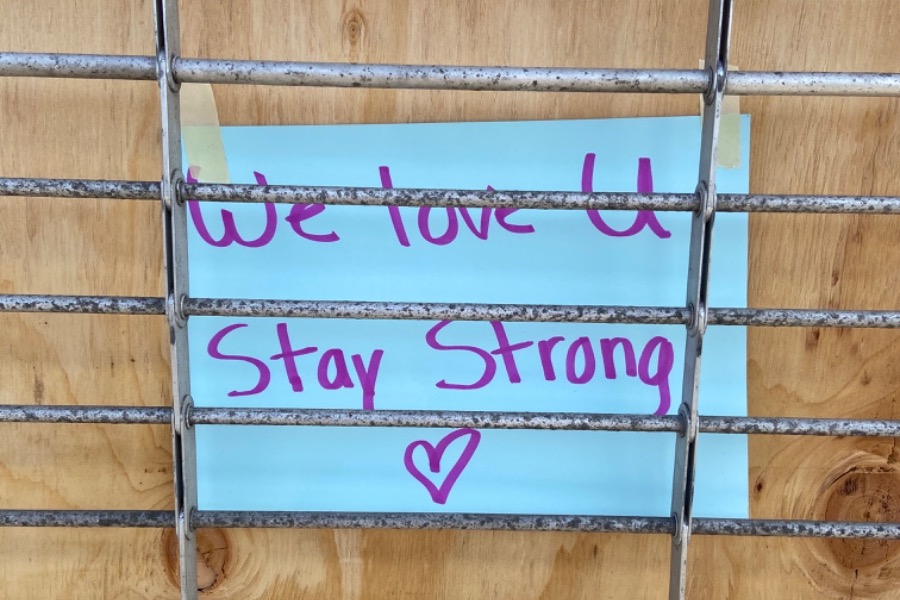 We love U
Stay Strong